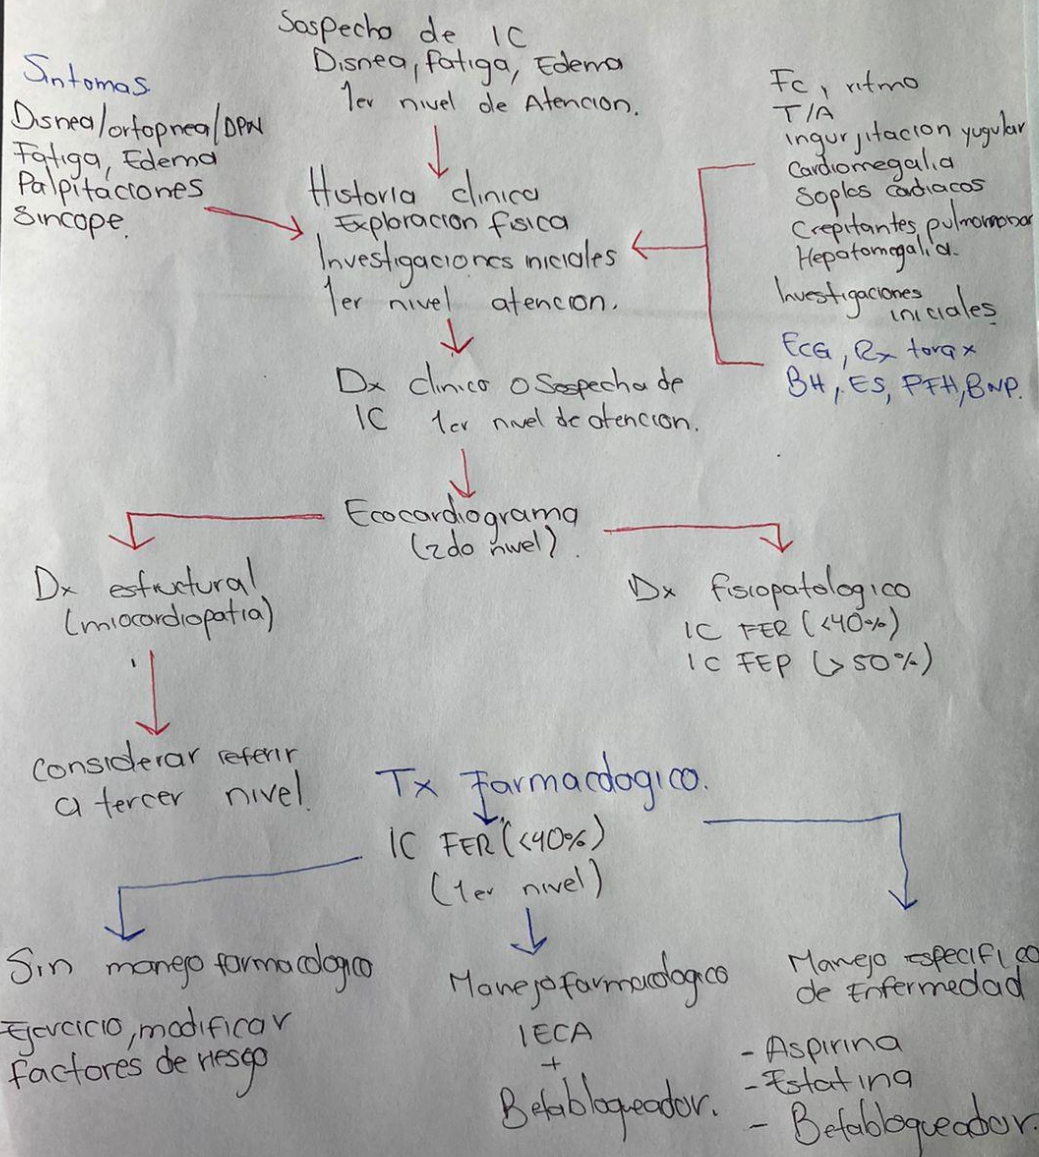 Sospecha de IC
Disnea, fatiga, Edema
1er nivel de Atencion.
Sintomas
Disnea/ortopnea/DPN
Fatiga, Edema
Palpitaciones
Sincope.
Fc, ritmo
T/A
ingurjitacion yugular
Cardiomegalia
Soplos cardiacos
Crepitantes pulmomonar
Hepatomegalia.
Investigaciones
iniciales
ECG, Rx torax
BH, ES, PFH, BNP.
Historia clinica
Exploracion fisica
Investigaciones iniciales
1er nivel atencion.
Dx clinico o Sospecha de
IC 1er nivel de atencion.
Ecocardiograma
(2do nivel).
Dx estructural
(miocardiopatia)
Considerar referir
a tercer nivel.
Dx fisiopatologico
IC FER (<40%)
IC FEP (>50%)
Tx Farmacologico.
IC FER (<40%)
(1er nivel)
Sin manejo farmacologico
Ejercicio, modificar
factores de riesgo
Manejo farmacologico
IECA
+
Betabloqueador.
Manejo especifico
de Enfermedad
- Aspirina
- Estatina
- Betabloqueador.